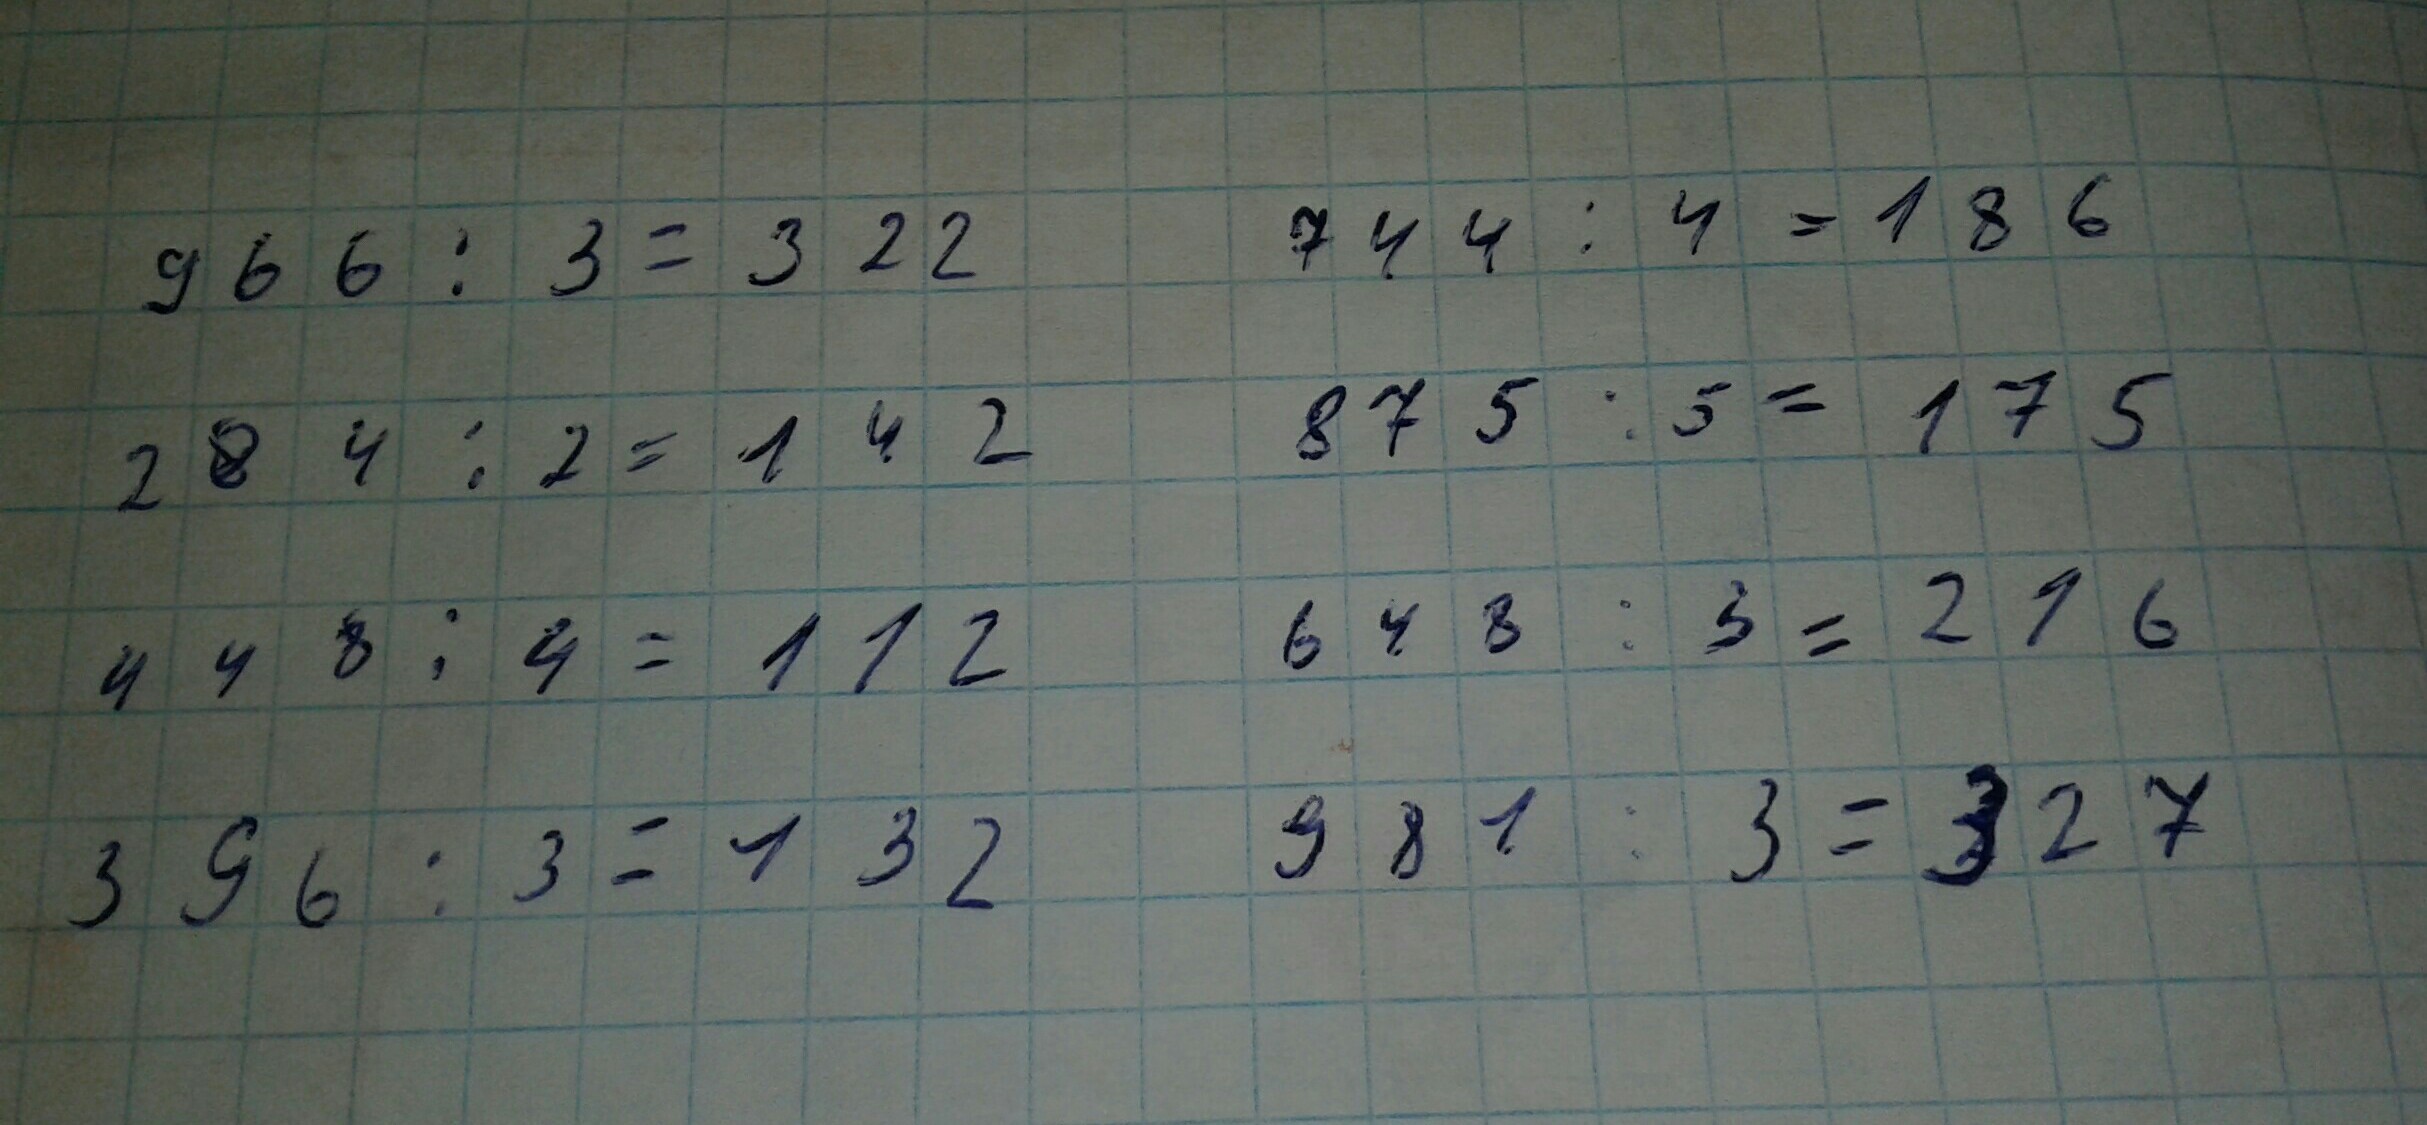 966 : 3 = 322
284 : 2 = 142
448 : 4 = 112
396 : 3 = 132
744 : 4 = 186
875 : 5 = 175
648 : 3 = 216
981 : 3 = 327